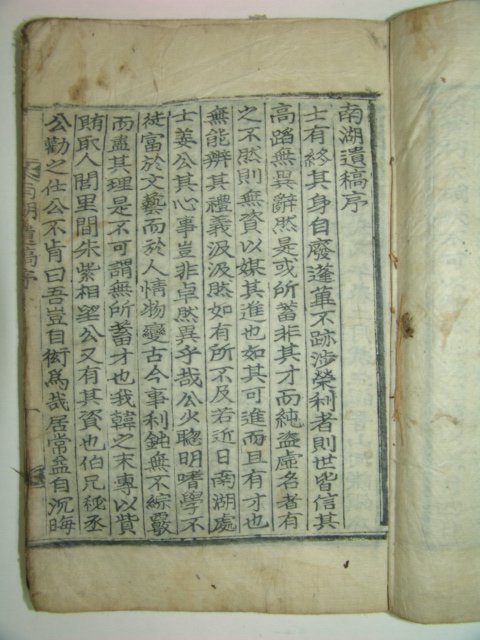 南湖遺稿序
士有終其身自廢蓬蓽不跡涉榮利者則世皆信其
高蹈無異辭然是或所蓄非其才而純盜虛名者有
之不然則無資以媒其進也如其可進而且有才也
無能癠其禮義汲汲然如有所不及若近日南湖處
士姜公其心事豈非卓然異乎哉公少聰明嗜學不
徒富於文藝而於人情物變古今事利鈍無不綜覈
而盡其理是不可謂無所蓄才也我韓之末專以貲
賄取人閭里間朱紫相望公又有其資也伯兄秘丞
公勸之仕公不肯曰吾豈自衒爲哉居常益自沉晦
南湖遺稿序